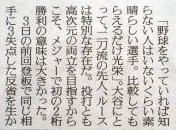 「野球をやっていれば知
らない人はいないくらい素
晴らしい選手。比較しても
らえるだけ光栄」。大谷にと
って、二刀流の先人、ルース
は特別な存在だ。投打とも
高次元の両立を目指すから
こそ、メジャーで初の2桁
勝利の意味は大きかった。
3日の前回登板で同じ相
手に3失点した反省を生か